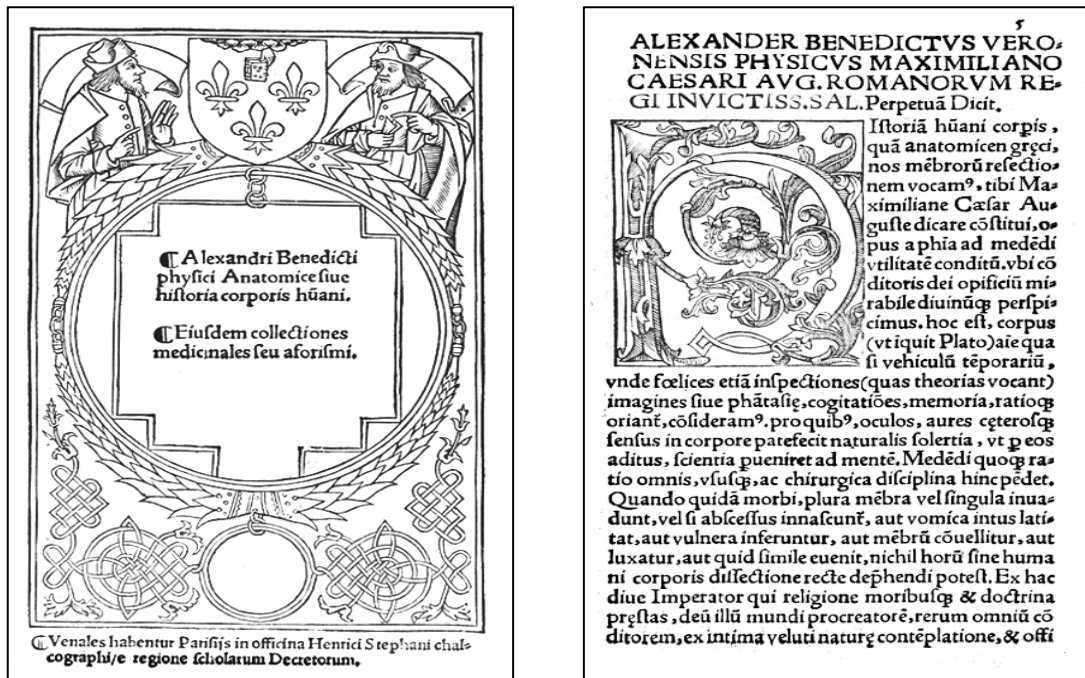 ¶ Alexandri Benedicti
physici Anatomice siue
historia corporis hūani.
¶ Eiusdem collectiones
medicinales seu aforismi.
¶ Venales habentur Parisijs in officina Henrici Stephani chal-
cographi/e regione scholarum Decretorum.
5
ALEXANDER BENEDICTVS VERO-
NENSIS PHYSICVS MAXIMILIANO
CAESARI AVG. ROMANORVM RE-
GI INVICTISS. SAL. Perpetuā Dicit.
Istoriā hūani corpis,
quā anatomicen gręci,
nos mēbrorū resectio-
nem vocamꝰ, tibi Ma-
ximiliane Cæsar Au-
guste dicare cōstitui, o-
pus a phia ad medēdi
vtilitatē conditū. vbi cō
ditoris dei opificiū mi-
rabile diuinūqꝫ perspi-
cimus. hoc est, corpus
(vt iquit Plato) aīe qua
si vehiculū tēporariū,
vnde fœlices etiā inspectiones (quas theorias vocant)
imagines siue phātasię, cogitatiōes, memoria, ratioqꝫ
oriant̄, cōsideramꝰ. pro quibꝰ, oculos, aures cęterosqꝫ
sensus in corpore patefecit naturalis solertia, vt ꝑ eos
aditus, scientia ꝑueniret ad mentē. Medēdi quoqꝫ ra-
tio omnis, vsusqꝫ, ac chirurgica disciplina hinc pēdet.
Quando quidā morbi, plura mēbra vel singula inua-
dunt, vel si abscessus innascunt̄, aut vomica intus lati-
tat, aut vulnera inferuntur, aut mēbrū cōuellitur, aut
luxatur, aut quid simile euenit, nichil horū sine huma
ni corporis dissectione recte dep̄hendi potest. Ex hac
diue Imperator qui religione moribusqꝫ & doctrina
pręstas, deū illū mundi procreatorē, rerum omniū cō
ditorem, ex intima veluti naturę contēplatione, & offi